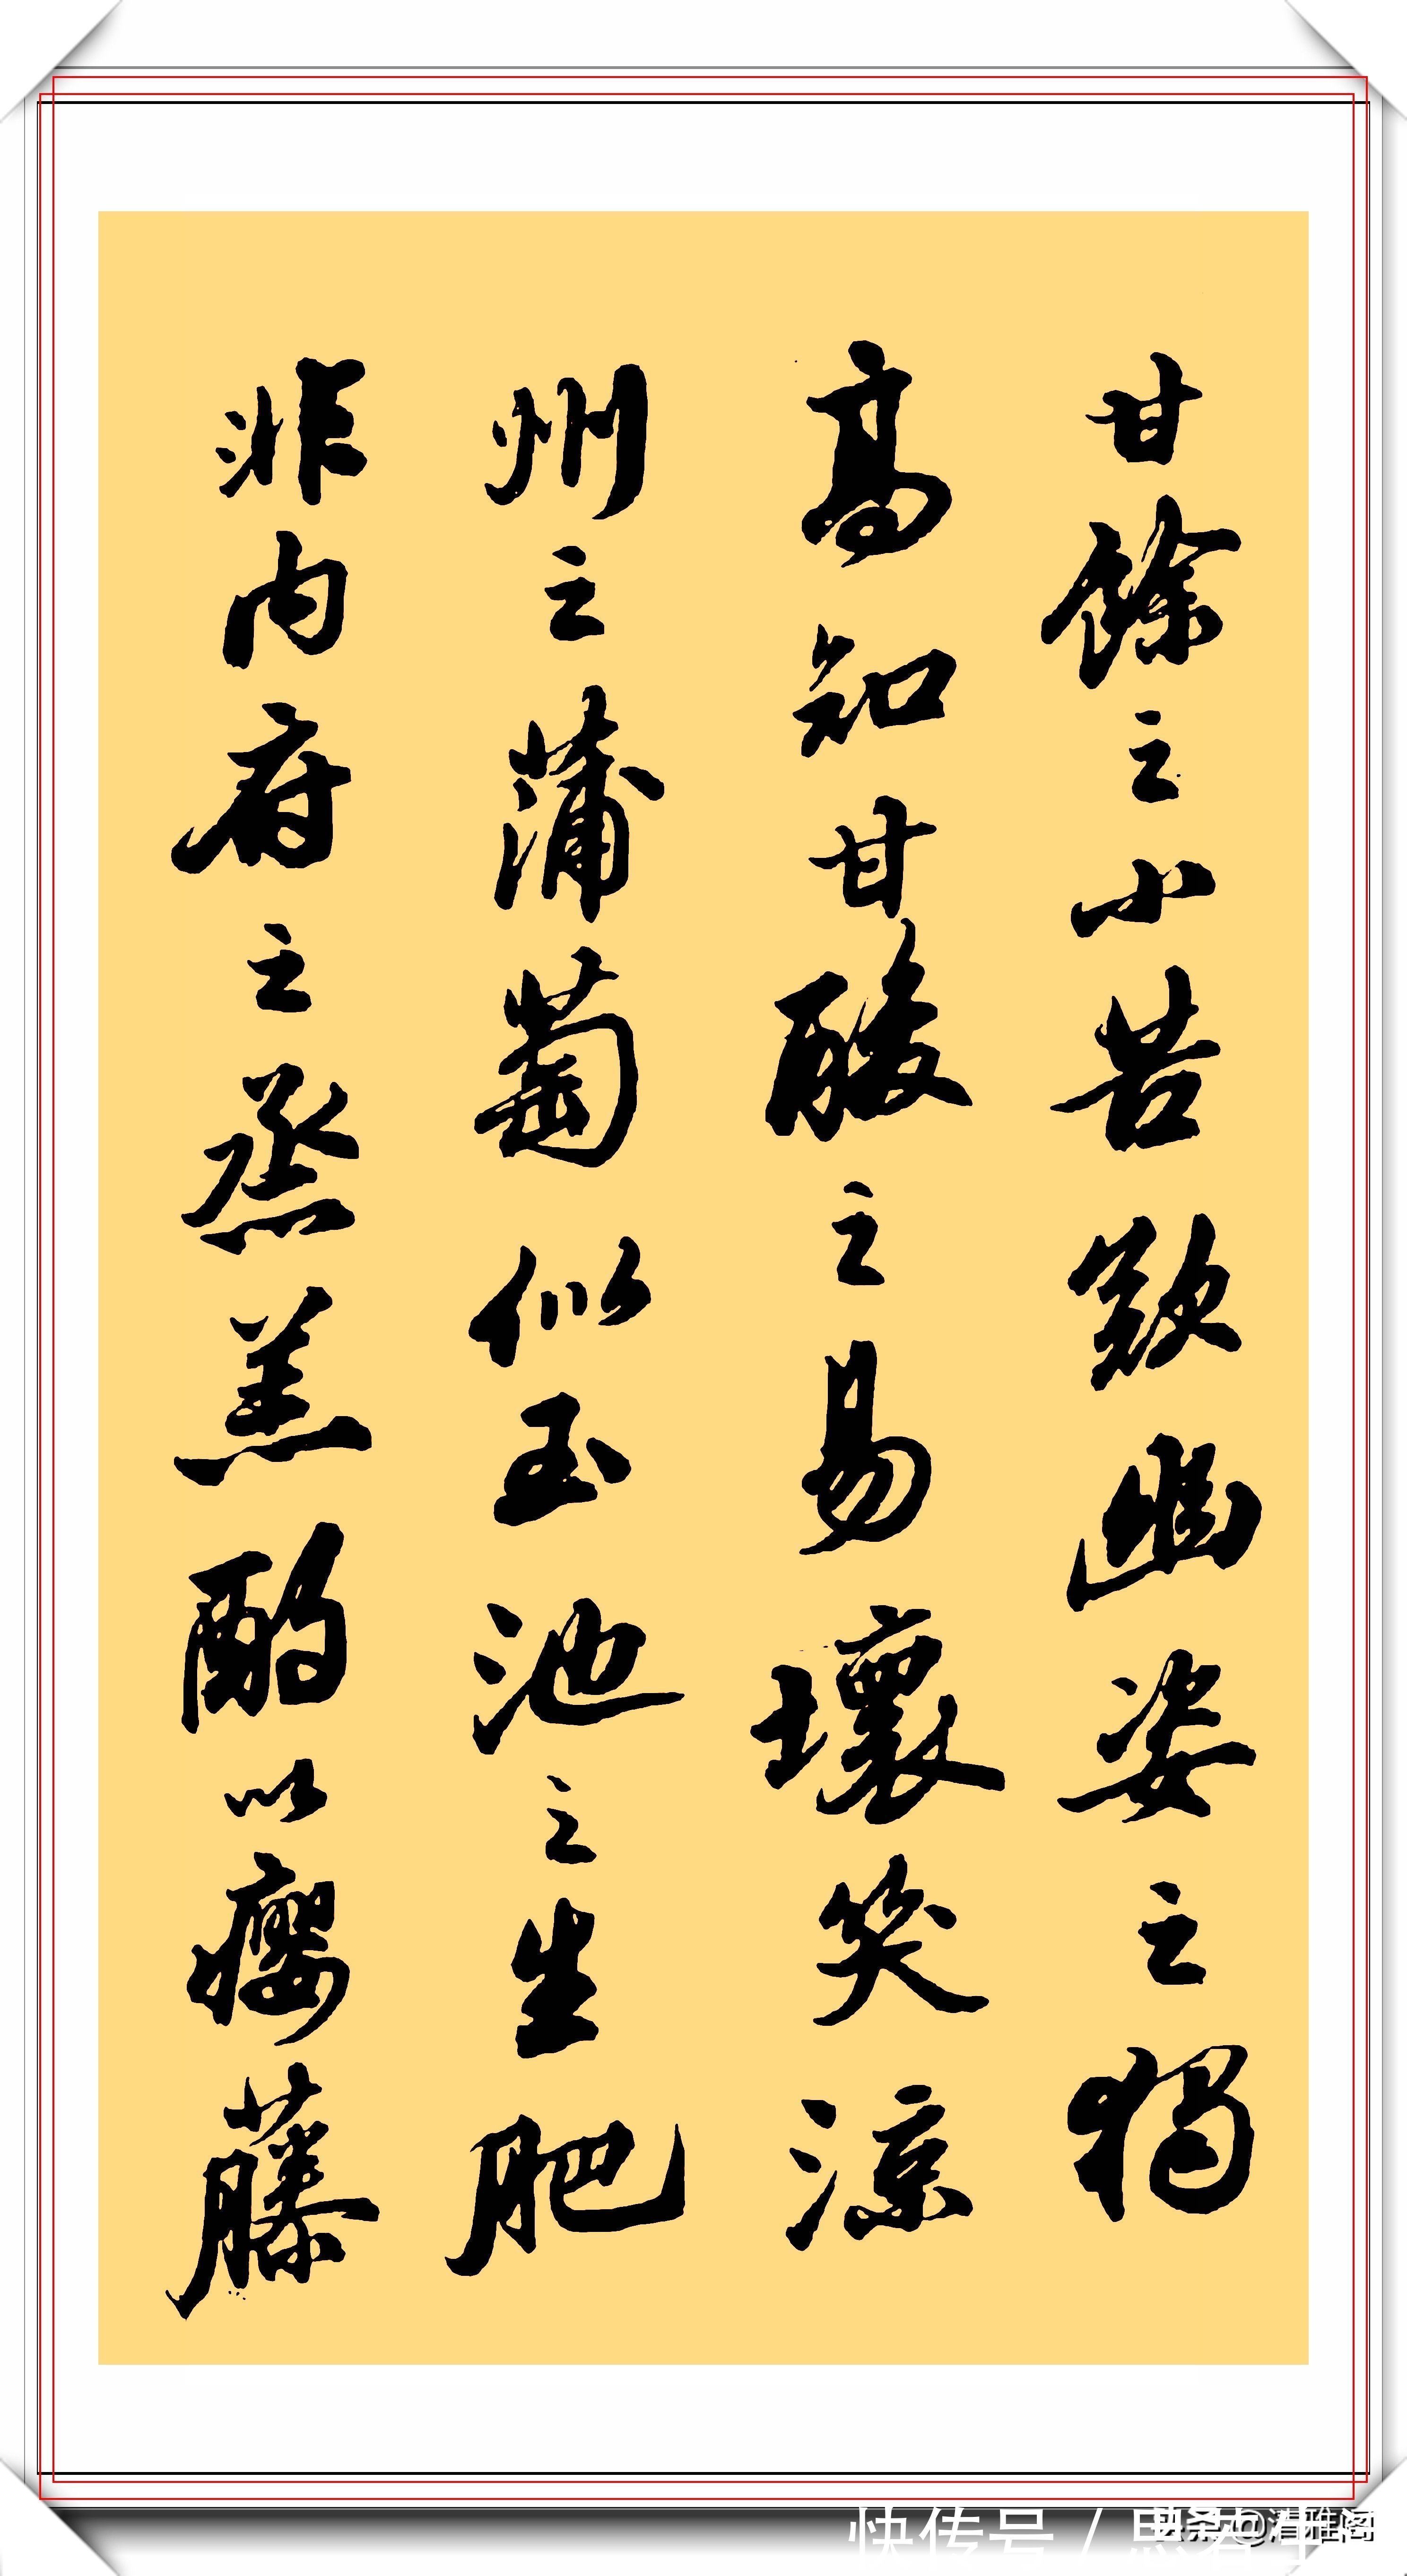 甘餘之小苦嘆幽姿之獨
高知甘酸之易壞笑涼
州之蒲萄似玉池之生肥
非内府之烝羔酌以癭藤
快传号 /
头条@清雅阁